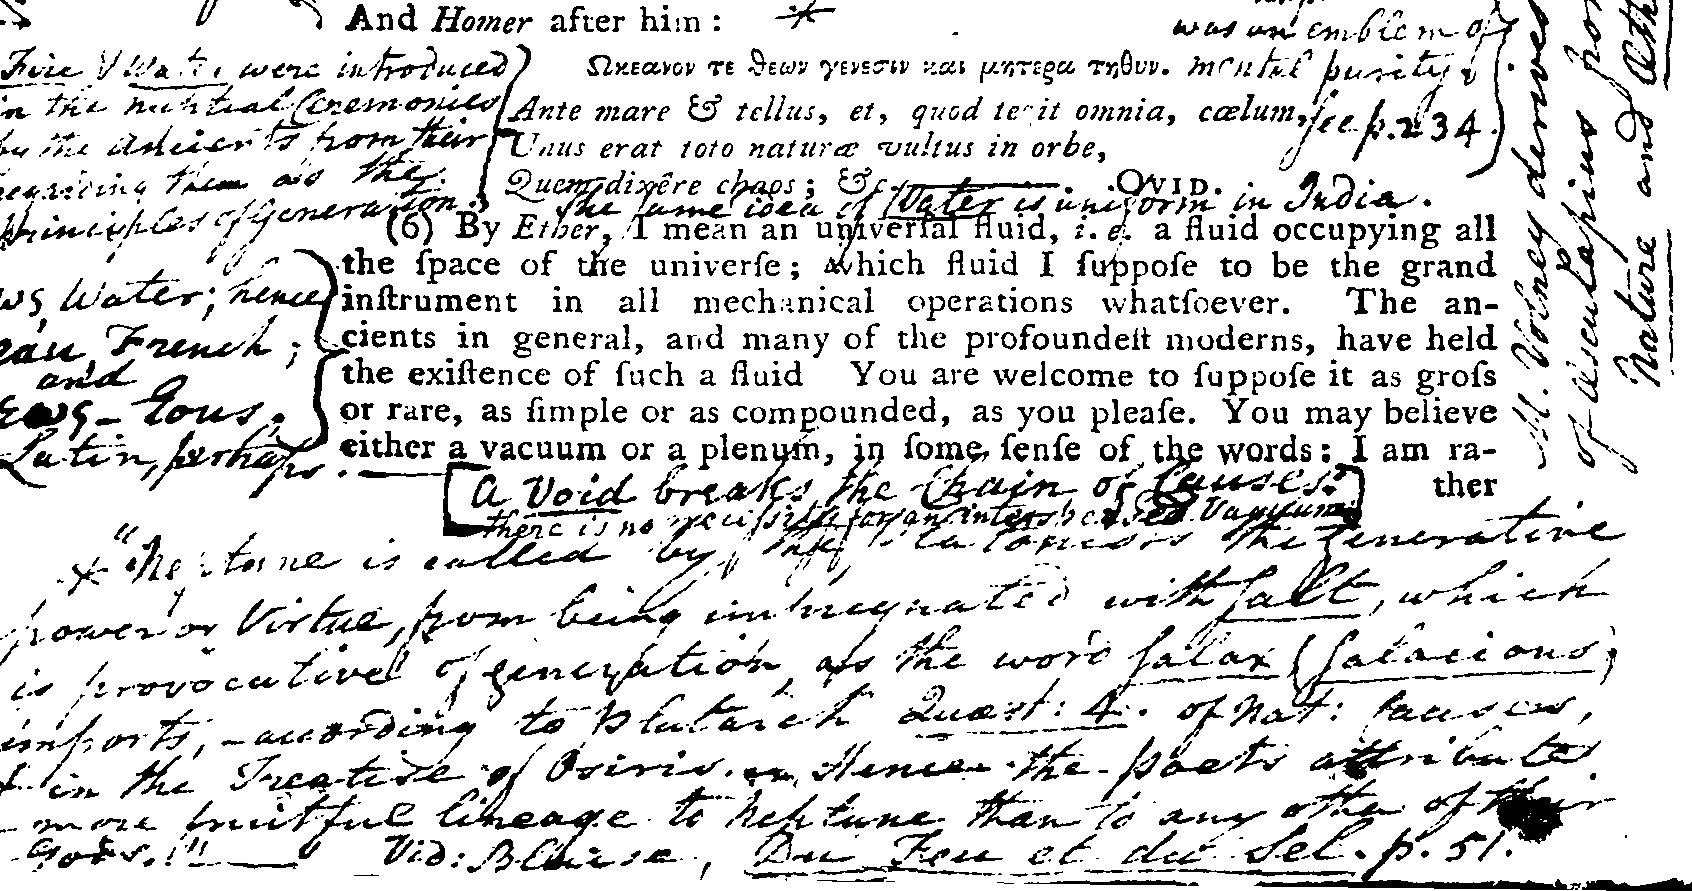 And Homer after him: *
Ωκεανον τε θεων γενεσιν και μητερα τηθυν.
Ante mare & tellus, et, quod tegit omnia, cœlum,
Unus erat toto naturæ vultus in orbe,
Quem dixêre chaos; &c. OVID.
(6) By Ether, I mean an univerſal fluid, i. e. a fluid occupying all
the ſpace of the univerſe; which fluid I ſuppoſe to be the grand
inſtrument in all mechanical operations whatſoever. The an-
cients in general, and many of the profoundeſt moderns, have held
the exiſtence of ſuch a fluid You are welcome to ſuppoſe it as groſs
or rare, as ſimple or as compounded, as you pleaſe. You may believe
either a vacuum or a plenum, in ſome ſenſe of the words: I am ra-
ther
Fire & Water were introduced
in the nuptial Ceremonies
by the Ancients from their
regarding them as the
principles of Generation.
was an emblem of
mental purity;
See p. 234.
The same idea of Water is uniform in India.
Water; hence
eau, French;
and
Latin, perhaps.
M. Volney derives
of Æsculapius from
Nature and
[A Void breaks the Chain of Causes:
there is no necessity for an interspersed Vacuum.]
* "Neptune is called by the Platonists the Generative
power or Virtue, from being impregnated with salt, which
is provocative of generation, as the word salax (salacious)
imports, - according to Plutarch Quæst: 4. of Nat: Causes,
& in the Treatise of Osiris. Hence the poets attribute
more fruitful lineage to Neptune than to any other of their
Gods." Vid: Blaise, Du Feu et du Sel. p. 51.